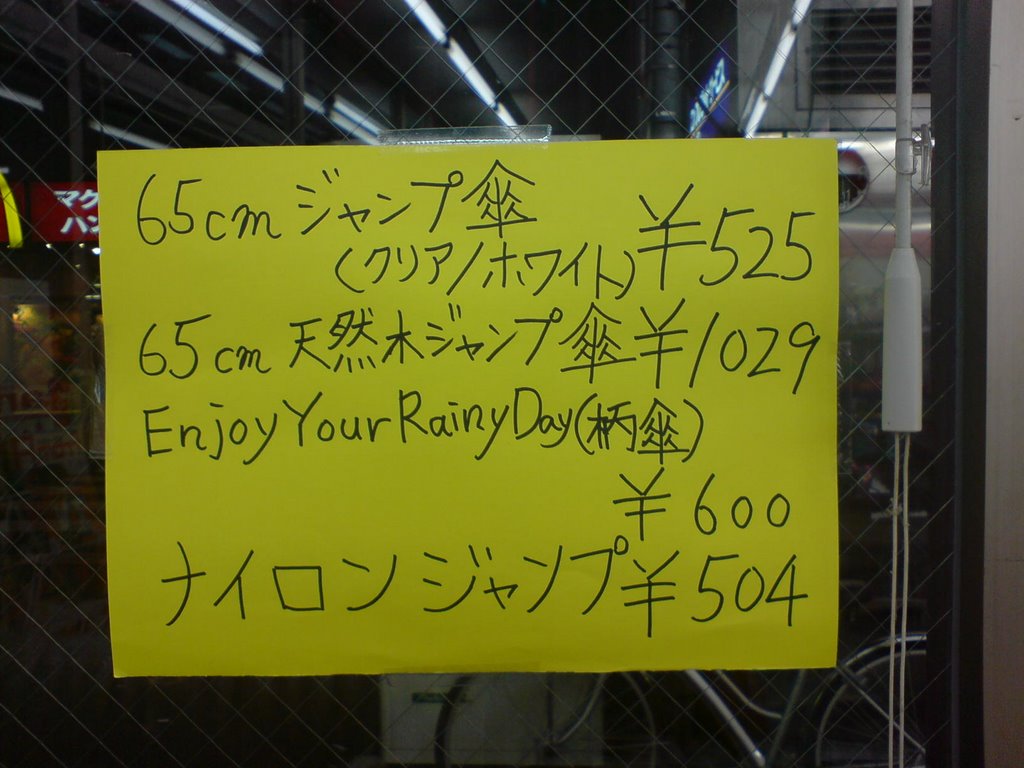 65cm ジャンプ傘
(クリア/ホワイト) ¥525
65cm 天然木ジャンプ傘 ¥1029
Enjoy Your Rainy Day(柄傘)
¥600
ナイロンジャンプ ¥504
マク
ハン